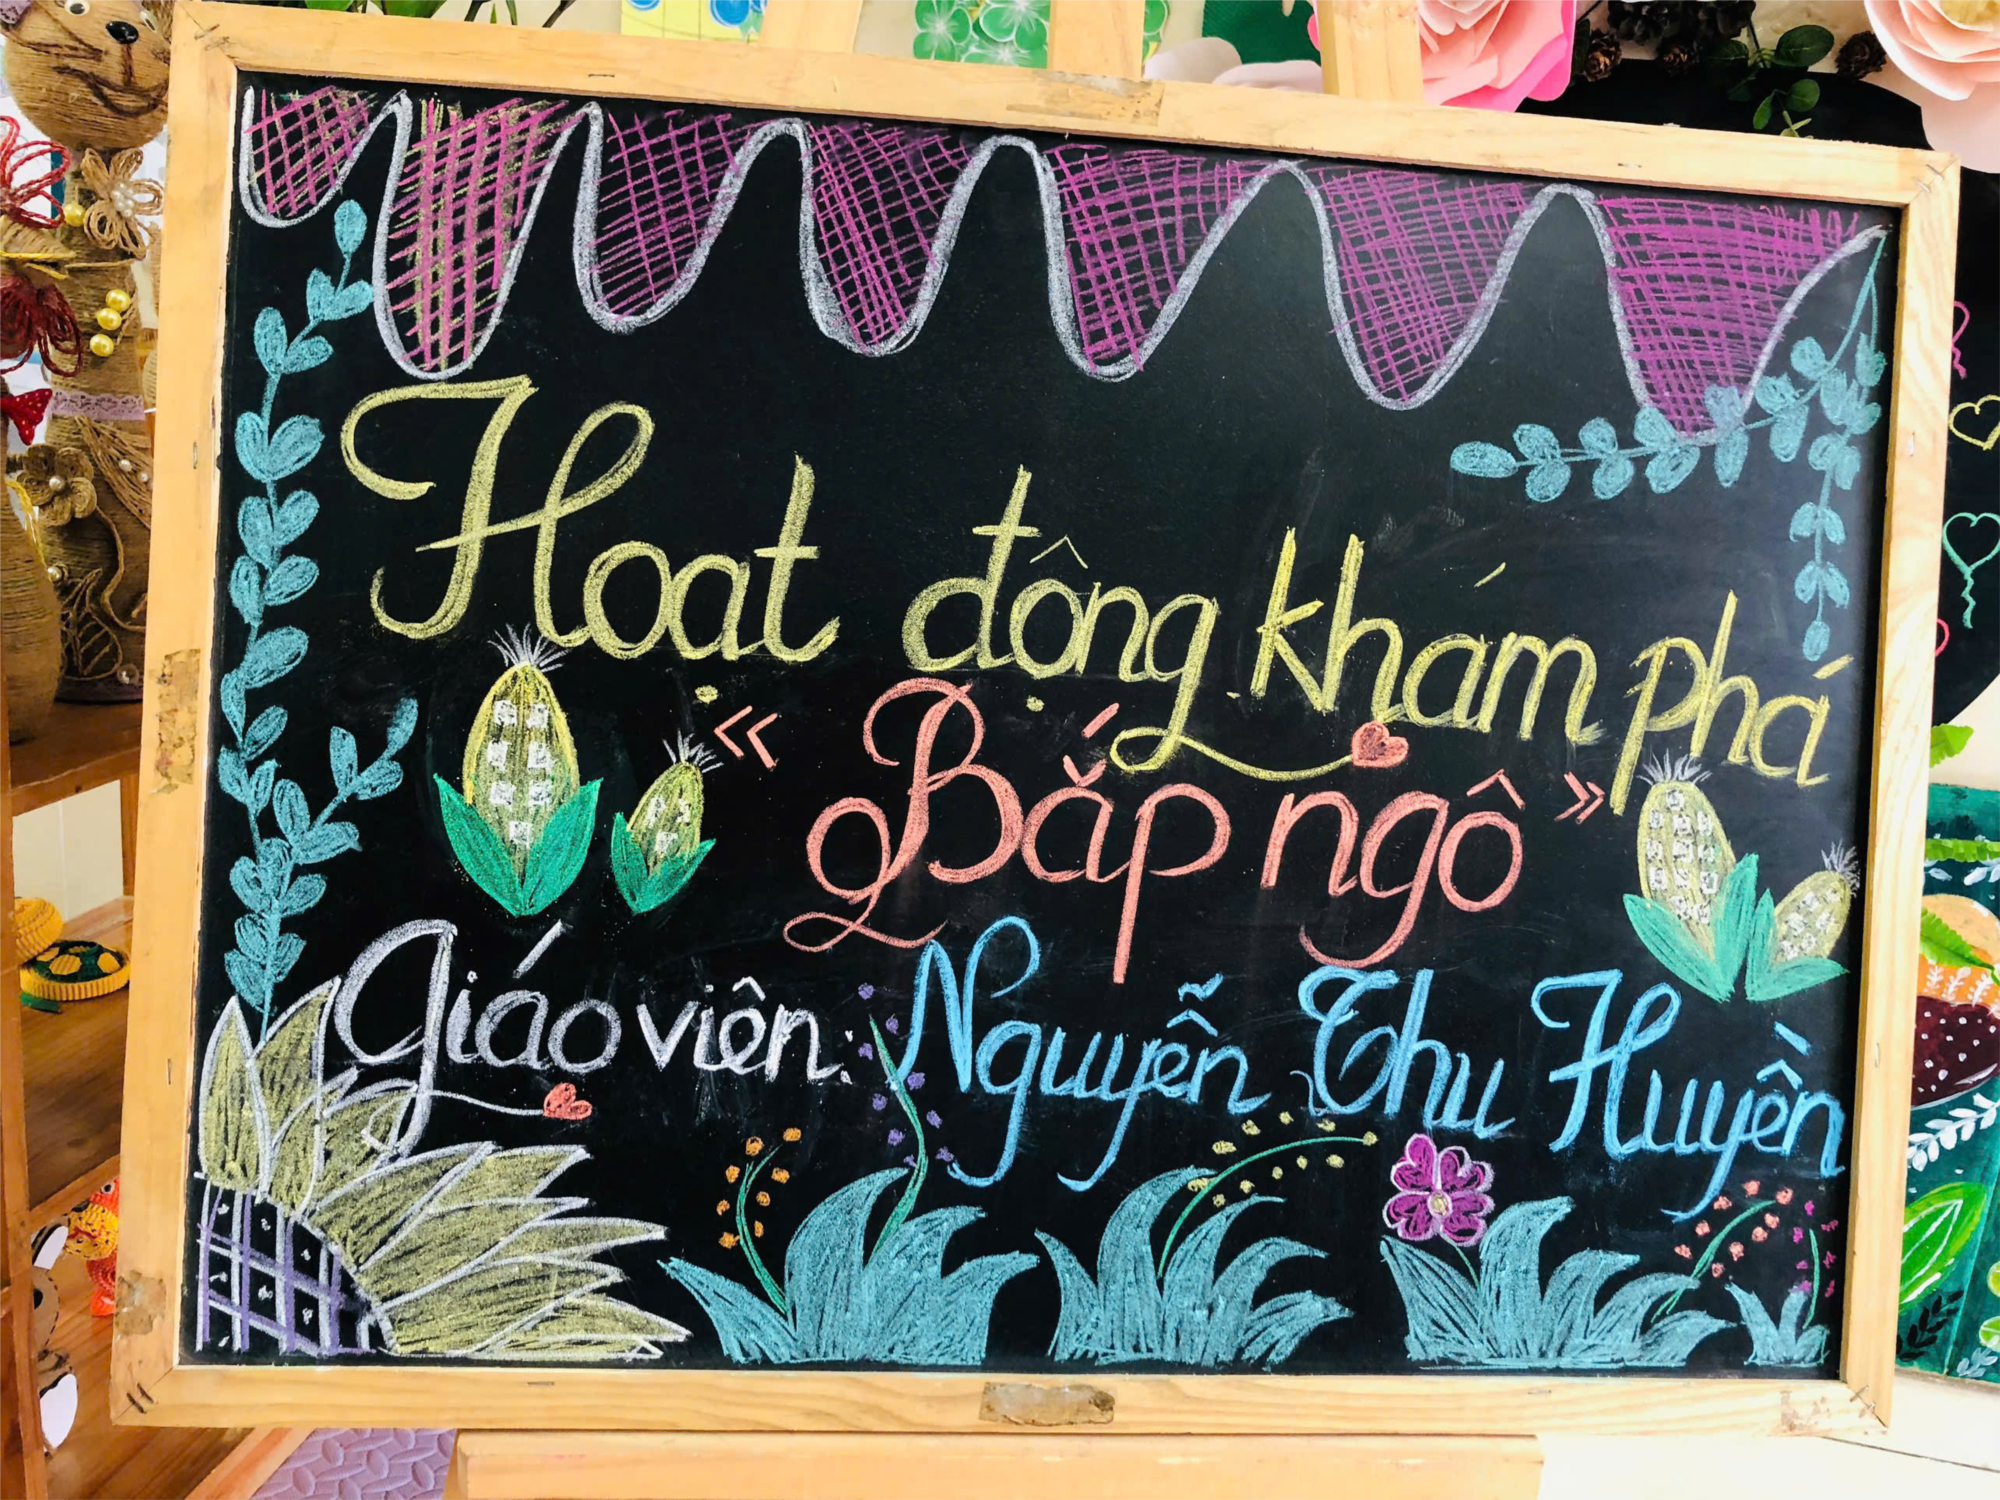 Hoạt động khám phá
« Bắp ngô »
Giáo viên: Nguyễn Thu Huyền